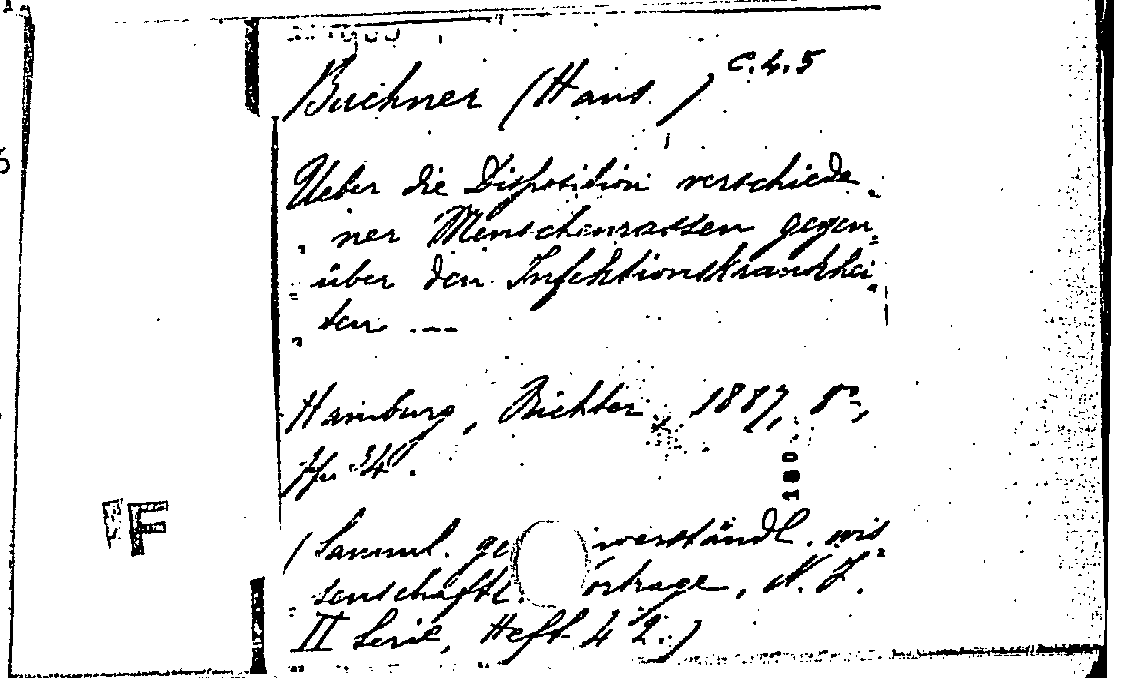 Buchner (Hans ) C.4.5
Ueber die Disposition verschiede-
ner Menschenrassen gegen-
über den Infektionskrankhei-
ten ...
Hamburg, Richter, 1887, 8°,
pp. 34.
180.
(Samml. ge iverständl. wis-
senschaftl. orträge, N. F.
II Serie, Heft 42.)
F